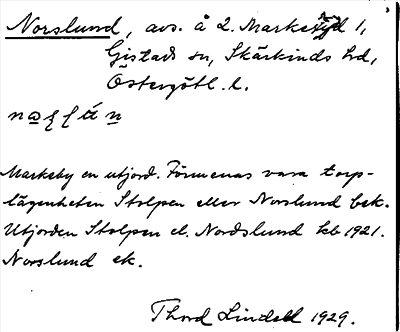 Norslund, avs. å 2. Markebyd 1,
Gistads sn, Skärkinds hd,
Östergötl. l.
Markeby en utjord. Förmenas vara torp-
lägenheten Stolpen eller Norslund bek.
Utjorden Stolpen el. Nordslund kb 1921.
Norslund ek.
Thord Lindell 1929.